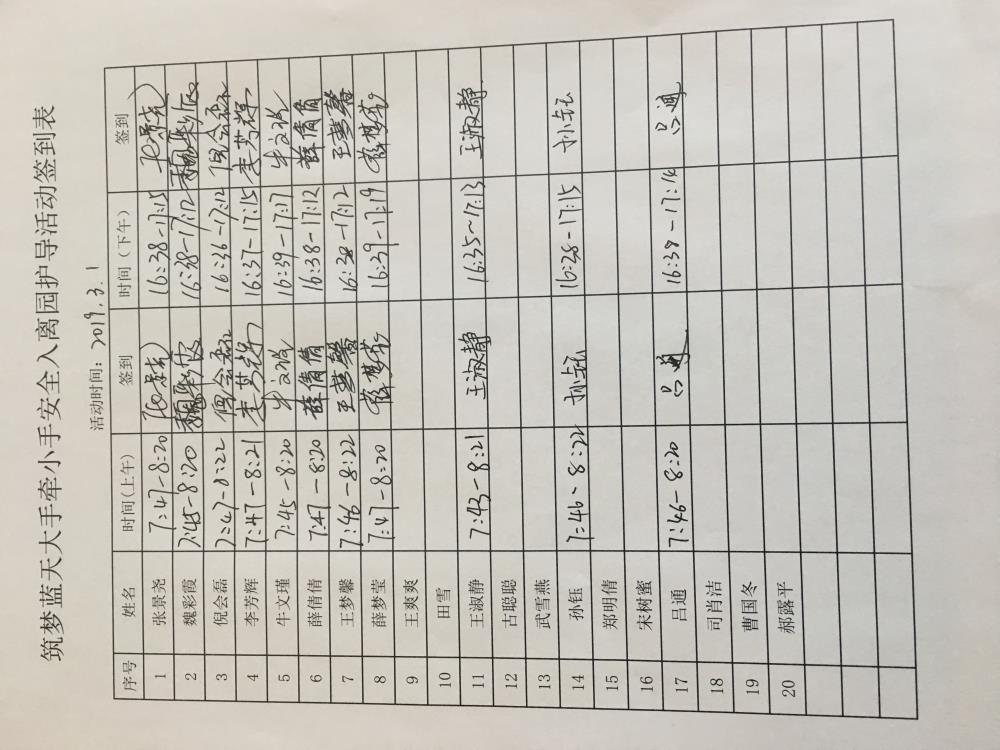 筑梦蓝天大手牵小手安全入离园护导活动签到表
活动时间：2019.3.1
序号 姓名 时间(上午) 签到 时间（下午） 签到
1 张景尧 7:47-8:20 张景尧 16:38-17:15 张景尧
2 魏彩霞 7:45-8:20 魏彩霞 16:38-17:12 魏彩霞
3 倪会磊 7:47-8:22 倪会磊 16:36-17:12 倪会磊
4 李芳辉 7:47-8:21 李芳辉 16:37-17:15 李芳辉
5 牛文瑾 7:45-8:20 牛文瑾 16:39-17:17 牛文瑾
6 薛倩倩 7:47-8:20 薛倩倩 16:38-17:12 薛倩倩
7 王梦馨 7:46-8:22 王梦馨 16:38-17:12 王梦馨
8 薛梦莹 7:47-8:20 薛梦莹 16:39-17:19 薛梦莹
9 王爽爽
10 田雪
11 王淑静 7:43-8:21 王淑静 16:35~17:13 王淑静
12 古聪聪
13 武雪燕
14 孙钰 7:46-8:22 孙钰 16:28-17:15 孙钰
15 郑明倩
16 宋树蜜
17 吕通 7:46-8:20 吕通 16:38-17:14 吕通
18 司肖洁
19 曹国冬
20 郝露平